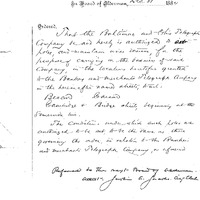 In Board of Aldermen, Dec. 188
Ordered,
That the Baltimore and Ohio Telegraph
Company be and hereby is authorized to
poles, and maintain wires thereon, for the
purpose of carrying on the business of said
Company, in the locations heretofore granted
to the Bankers and Merchants Telegraph Company
in the hereinafter named streets, viz:
Cambridge & Bridge streets, beginning at the
Somerville line.
The conditions under which such poles are
authorized to be set to be the same as those
governing the order in relation to the Bankers
and Merchants Telegraph Company as aforesaid
Referred to the next Board of Aldermen.